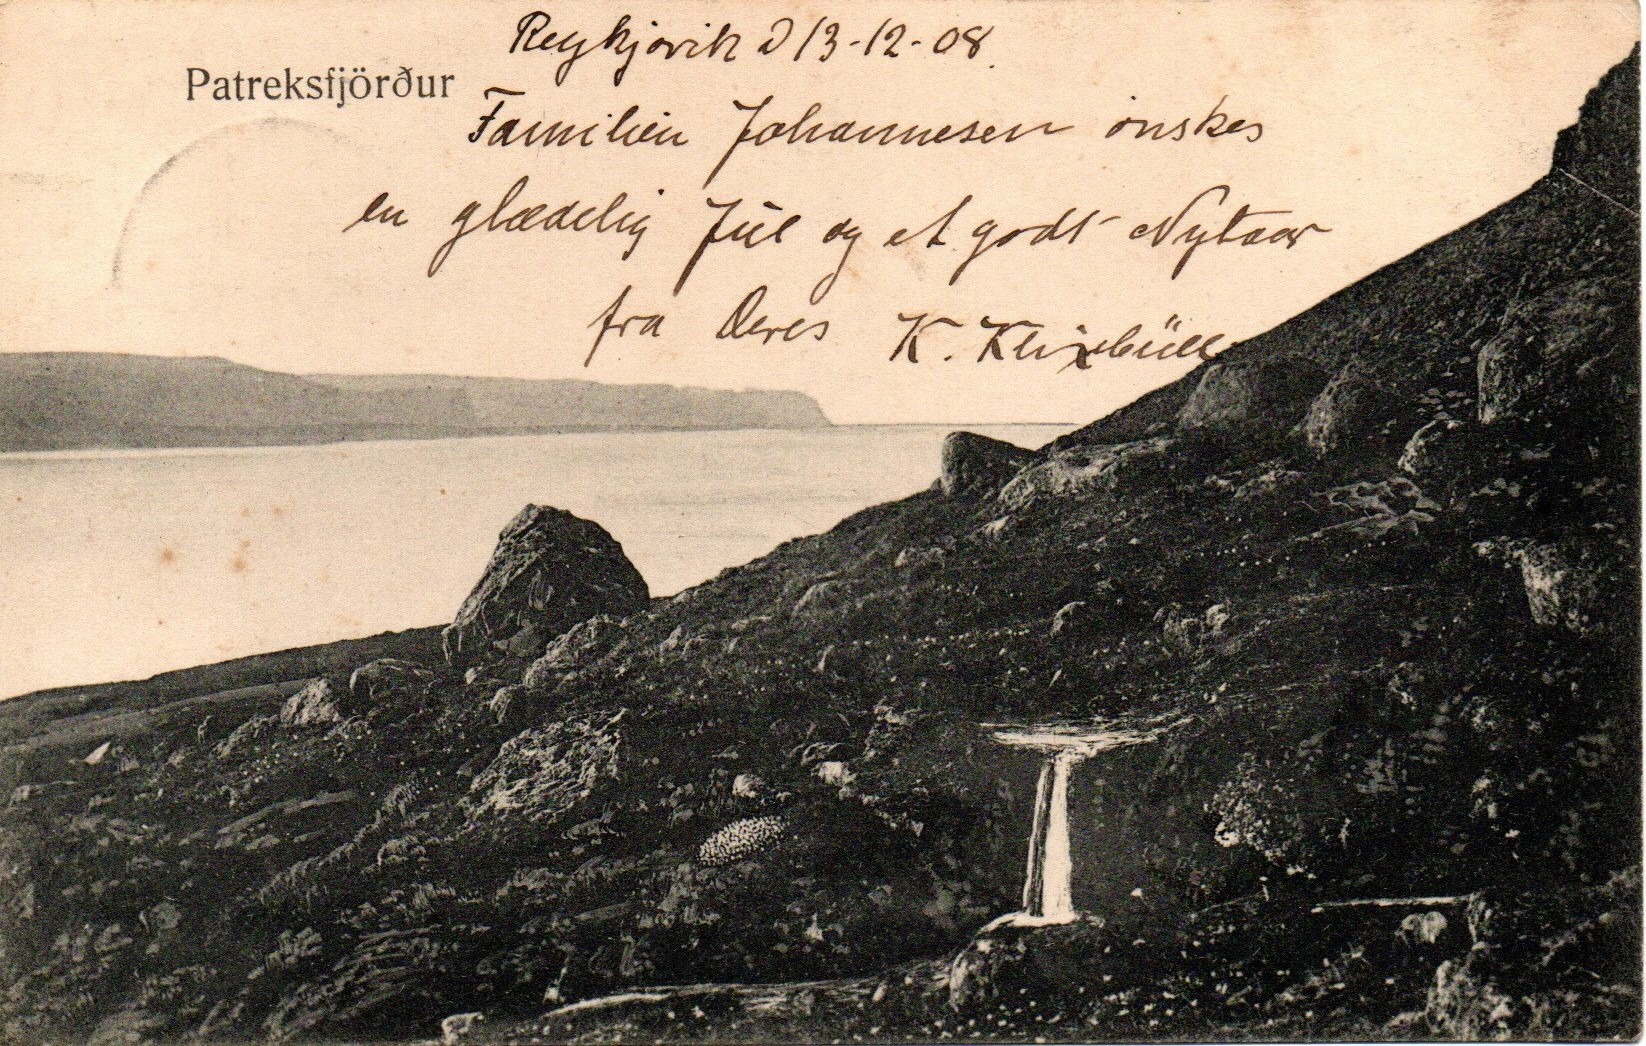 Reykjavik d 13-12-08.
Patreksfjörður
Familien Johannesen ønskes
en glædelig Jul og et godt Nytaar
fra Deres K. Klixbüll